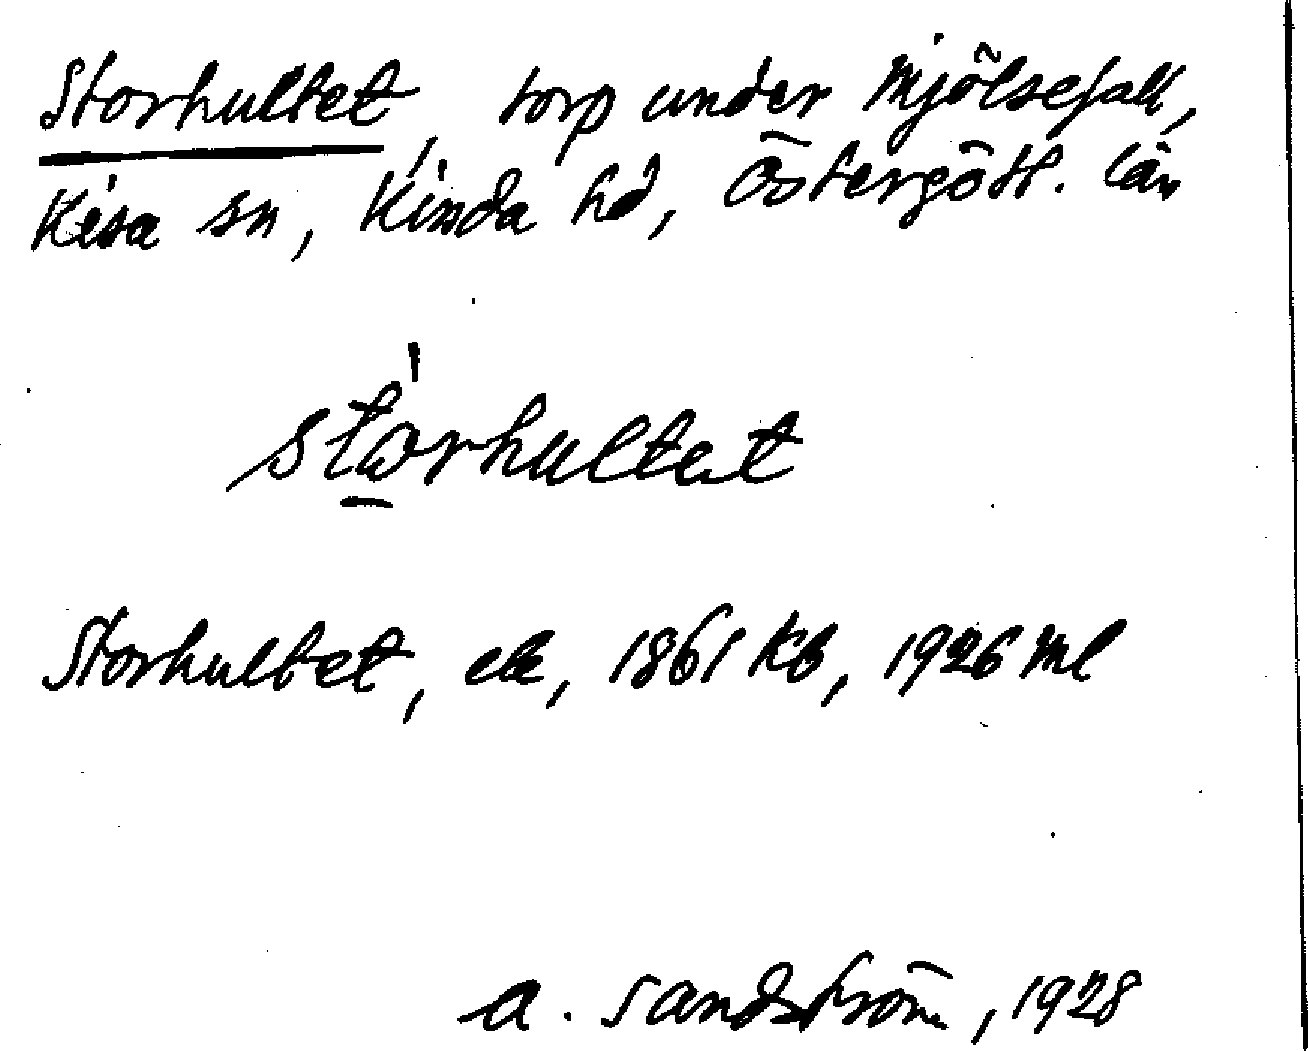 Storhultet, torp under Mjölsefall,
Kisa sn, Kinda hd, Östergötl. län
sto̲rhultet
Storhultet, 1861 Kb, 1926 Ml
A. Sandström, 1928